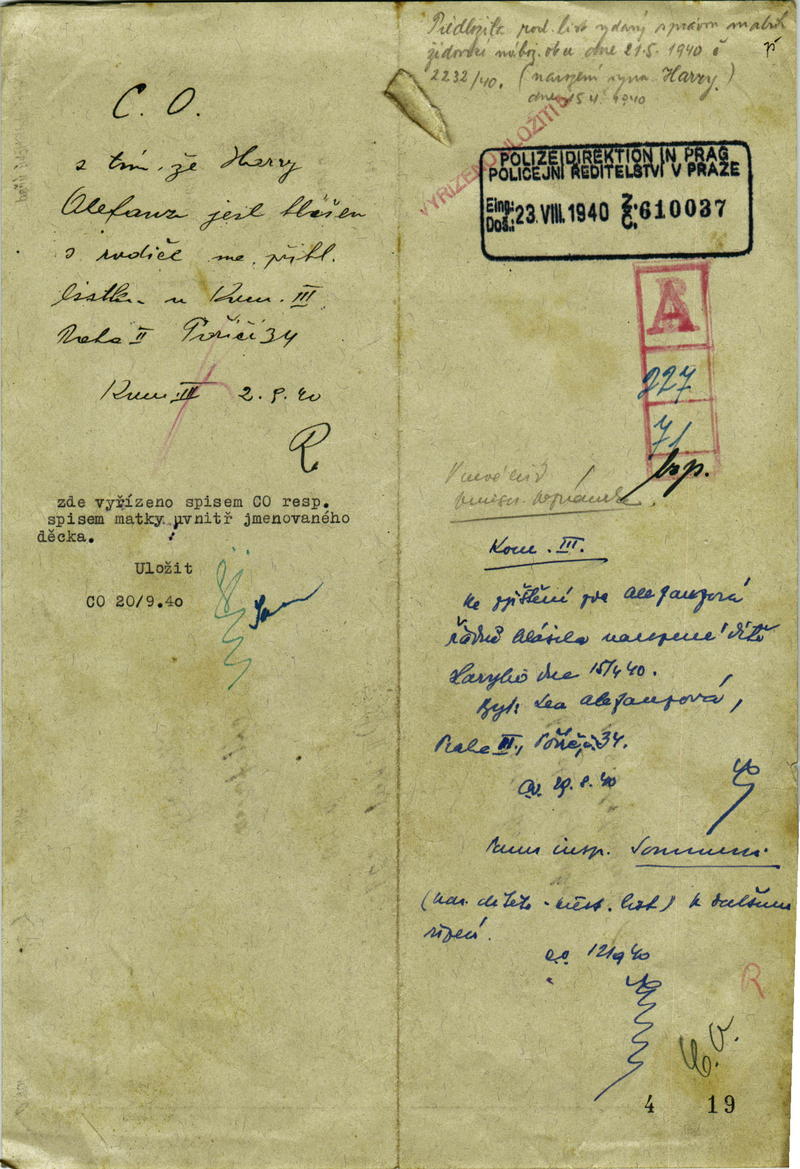 C. O.
s tím, že Harry
jest hlášen
s rodiči na přihl.
lístku u Kom. III
Praha II Poříčí 34
Kom. III 2.9.40
R.
zde vyřízeno spisem CO resp.
spisem matky uvnitř jmenovaného
děcka.
Uložit
CO 20/9.40
Předložila rod. list vydaný správou matrik
židovské nábož. obce dne 21.5. 1940 č
2232/40. (narození syna Harry)
dne 15.4. 1940
VYŘÍZENO ULOŽITI
POLIZEIDIREKTION IN PRAG
POLICEJNÍ ŘEDITELSTVÍ V PRAZE
Eing.: 23. VIII. 1940 Z. 610037
Doš.: Č.
A
227
71
Kom. III.
ke zjištění zda
řádně hlásila narozené dítě
Harryho dne 15/4 40.
Byt: Lea
Praha III, Poříčí 34.
29.8.40
insp.
(nar. dítěte - list) k dalšímu
řízení.
R
C.O.
4 19